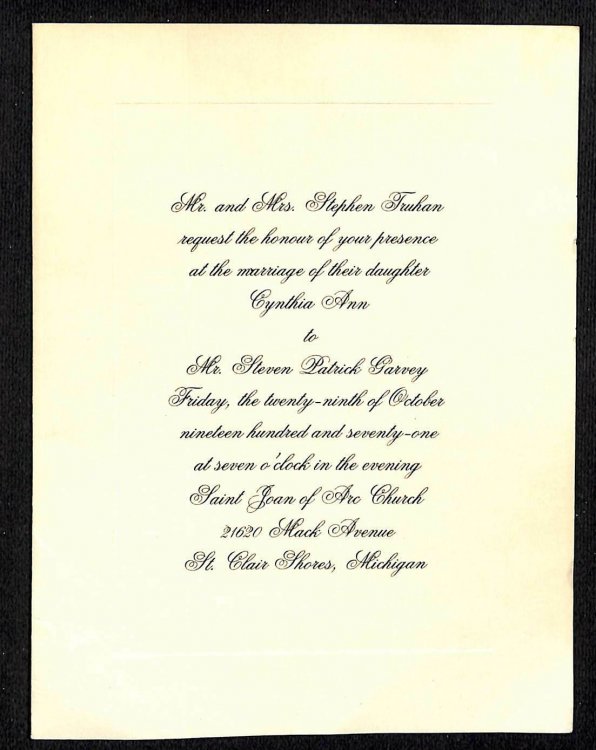 Mr. and Mrs. Stephen Truhan
request the honour of your presence
at the marriage of their daughter
Cynthia Ann
to
Mr. Steven Patrick Garvey
Friday, the twenty-ninth of October
nineteen hundred and seventy-one
at seven o'clock in the evening
Saint Joan of Arc Church
21620 Mack Avenue
St. Clair Shores, Michigan